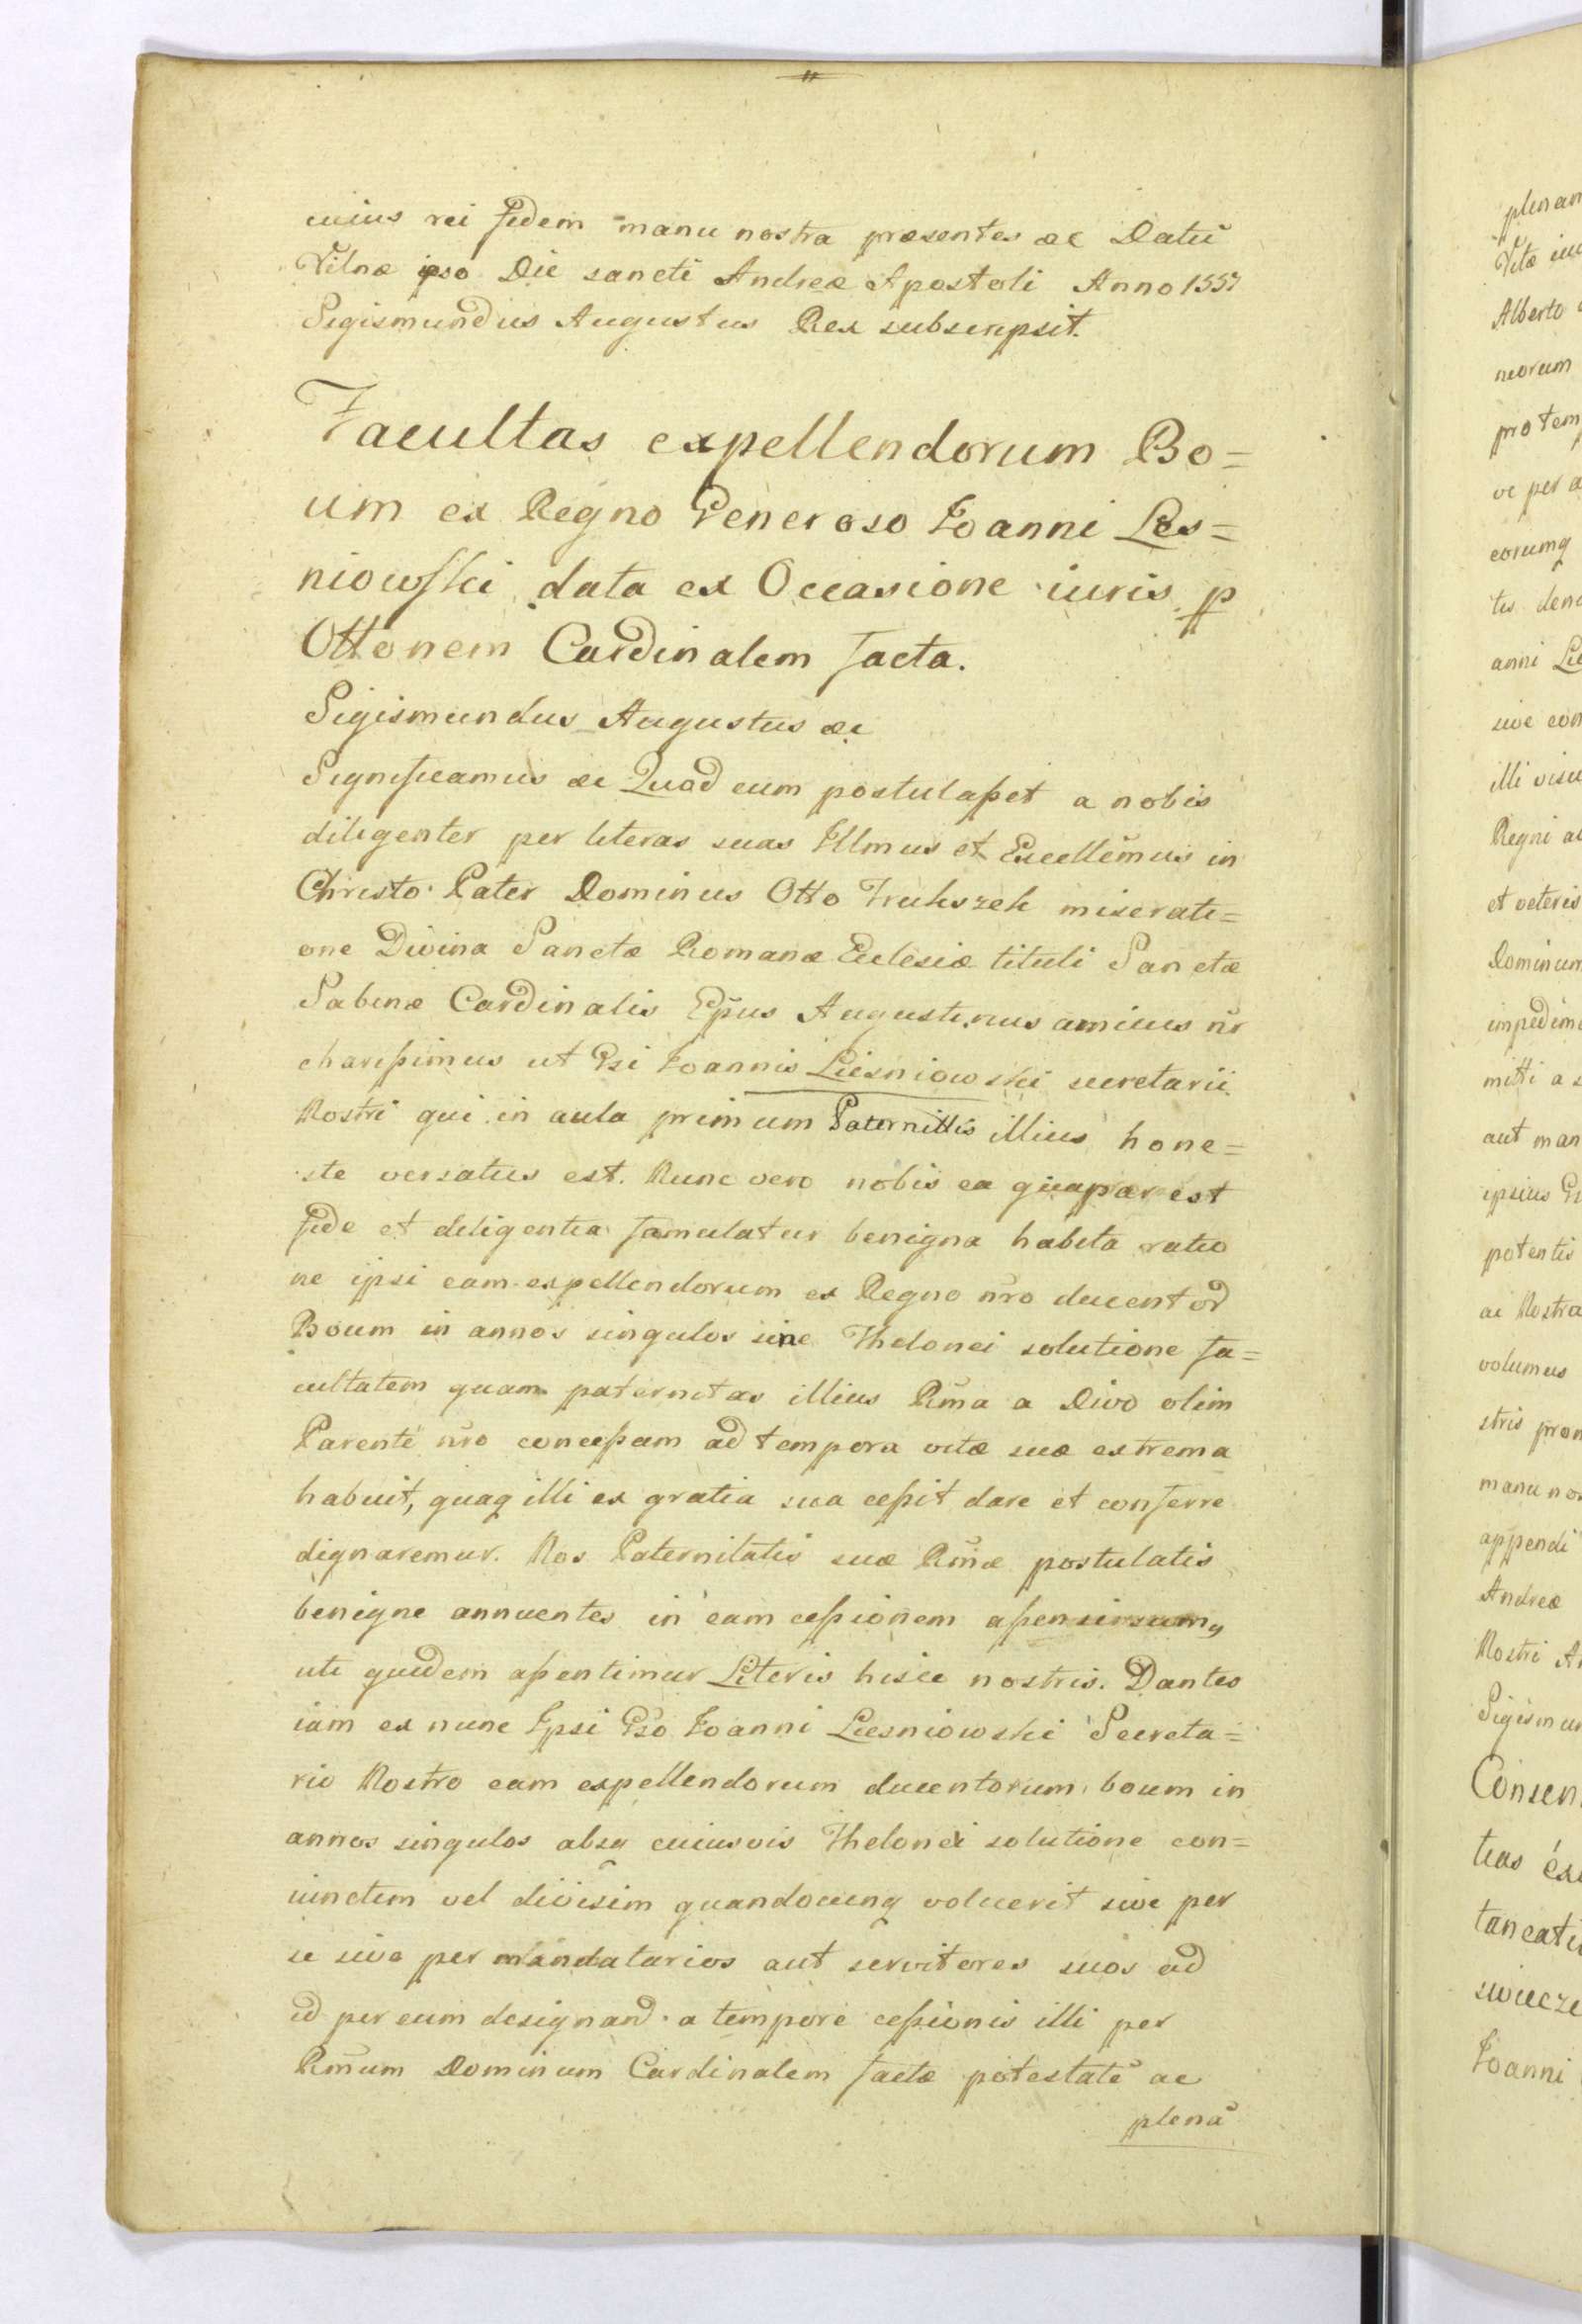 cuius rei fidem manu nostra præsentes &c Datū
Vilnæ ipso Die sancti Andreæ Apostoli Anno 1557
Sigismundus Augustus Rex subscripsit.
Facultas expellendorum Bo=
um ex Regno Generoso Ioanni Les=
niowski data ex Occasione iuris p
Ottonem Cardinalem facta.
Sigismundus Augustus &c
Significamus &c Quod cum postulaßet a nobis
diligenter per literas suas Illmus et Excellēmus in
Christo Pater Dominus Otto Truhszeh miserati=
one Divina Sanctæ Romanæ Eclesiæ tituli Sanctæ
Sabinæ Cardinalis Epūs Augustinus amicus nr̄
charißimus ut Gsi Ioannis Liesniowski secretarii
Nostri qui in aula primum Paternittis illius hone=
ste versatus est. Nunc vero nobis ea qua par est
fide et diligentia famulatur benigna habita ratio
ne ipsi eam expellendorum ex Regno nr̄o ducentor
Boum in annos singulos sine Thelonei solutione fa=
cultatem quam paternitas illius Rm̄a a Divo olim
Parente nr̄o conceßam ad tempora vitæ suæ extrema
habuit, quaq illi ex gratia sua ceßit dare et conferre
dignaremur. Nos Paternitatis suæ Rm̄æ postulatis
benigne annuentes in eam ceßionem
uti quidem aßentimur Literis hisce nostris. Dantes
iam ex nunc Ipsi Gso Ioanni Liesniowski Secreta=
rio Nostro eam expellendorum ducentorum boum in
annos singulos absq cuiusvis Thelonei solutione con=
iunctim vel divisim quandocunq voluerit sive per
se sive per mandatarios aut servitores suos ad
id per eum designand. a tempore ceßionis illi per
Rm̄um Dominum Cardinalem factæ potestatē ac
plenā
plenam
Alberto
protem
ve per a
eorumq
anni Lie
sive con
illi visu
Regni ac
et veteris
Dominum
mitti a s
aut man
potentis
ac Nostra
volumus
stris
manu nos
appendi
Andreæ
Nostri
Sigismun
Consen
Ioanni